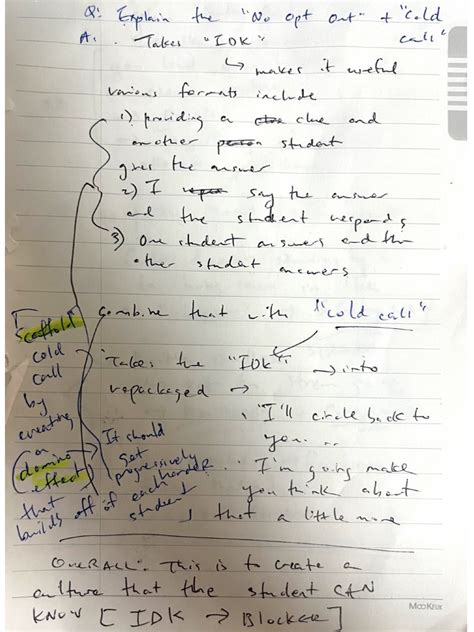 Q: Explain the "No opt out" + "Cold call"
A: . Takes "IDK"
↳ makes it useful
various formats include
1) providing a clue and
another student
gives the answer
2) I say the answer
and the student responds
3) One student answers and the
other student answers
combine that with "cold call"
Takes the "IDK" → into
repackaged →
"I'll circle back to
you...
I'm going make
you think about
that a little more
Scaffold
cold
call
by
creating
a
domino
effect
that
builds off of each
student
It should
get
progressively
harder
OVERALL: This is to create a
culture that the student CAN
KNOW [IDK → BLOCKER]
MOOKRIX